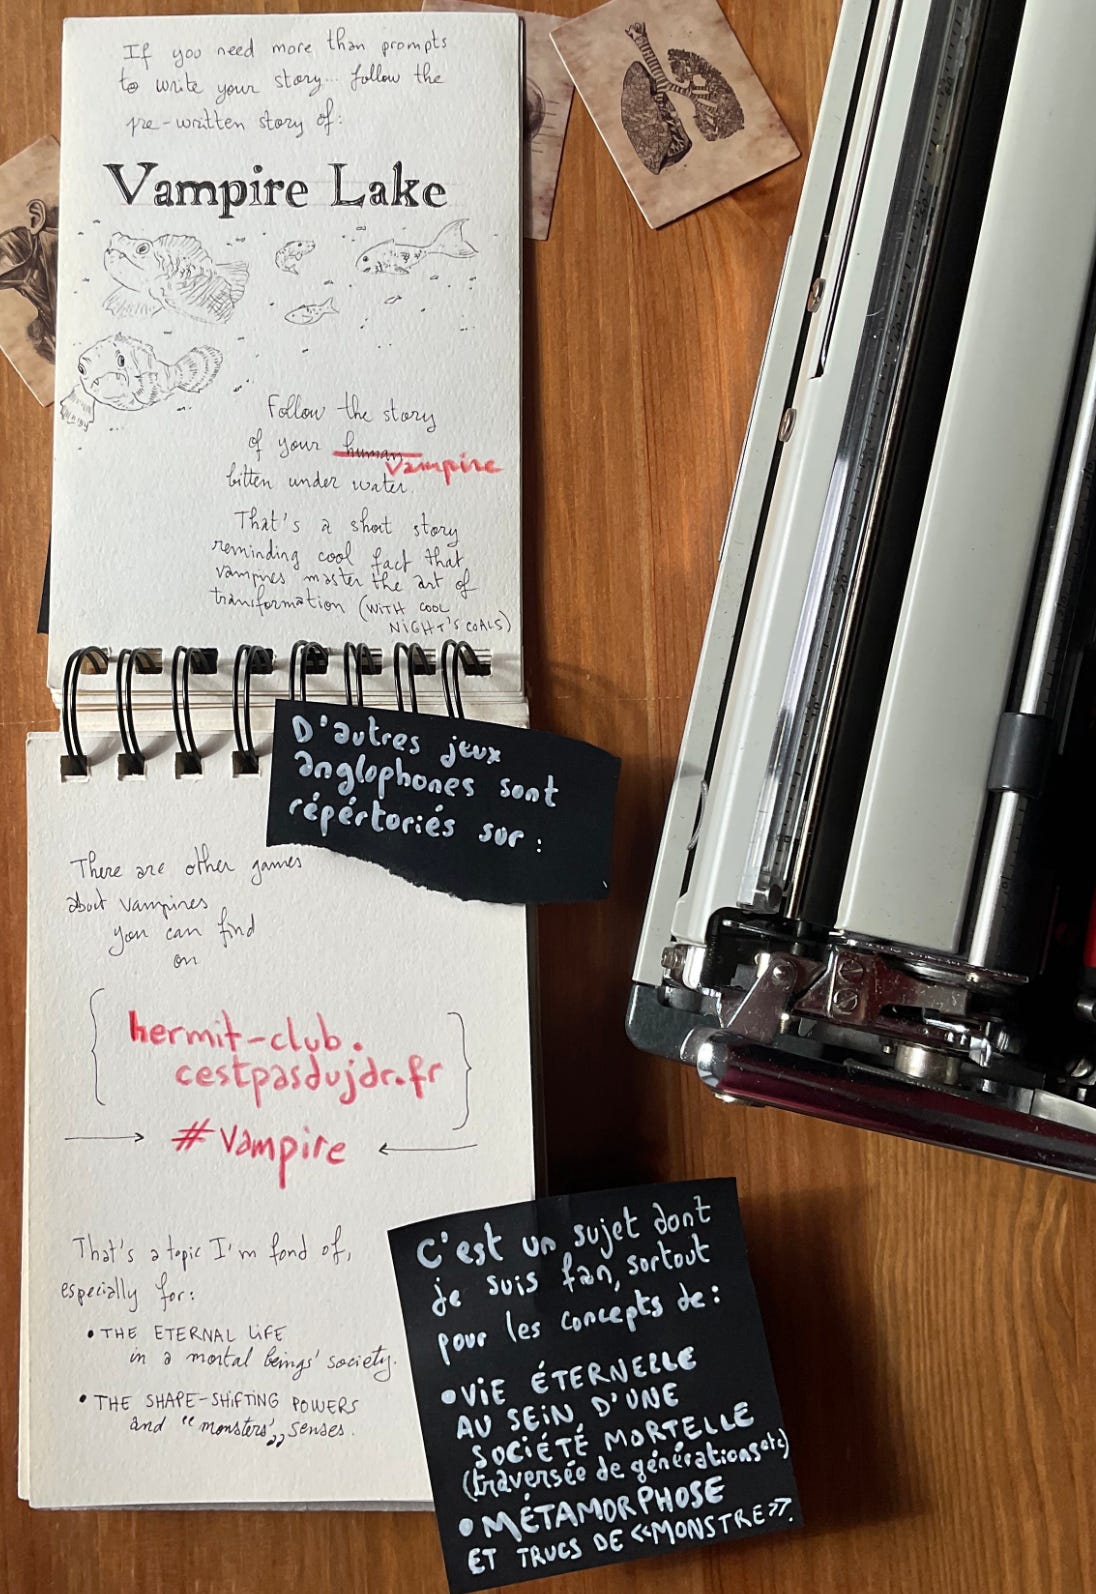 If you need more than prompts
to write your story... follow the
pre-written story of:
Vampire Lake
Follow the story
of your human vampire
bitten under water.
That's a short story
reminding cool fact that
vampires master the art of
transformation (WITH COOL
NIGHT'S GOALS)
D'autres jeux
anglophones sont
répértoriés sur :
There are other games
about vampires
you can find
on
hermit-club.
cestpasdujdr.fr
#vampire
That's a topic I'm fond of,
especially for:
• THE ETERNAL LIFE
in a mortal beings' society.
• THE SHAPE-SHIFTING POWERS
and "monsters'" senses.
C'est un sujet dont
je suis fan, sortout
pour les concepts de :
• VIE ÉTERNELLE
AU SEIN D'UNE
SOCIÉTÉ MORTELLE
(traversée de générations etc)
• MÉTAMORPHOSE
ET TRUCS DE «MONSTRE».